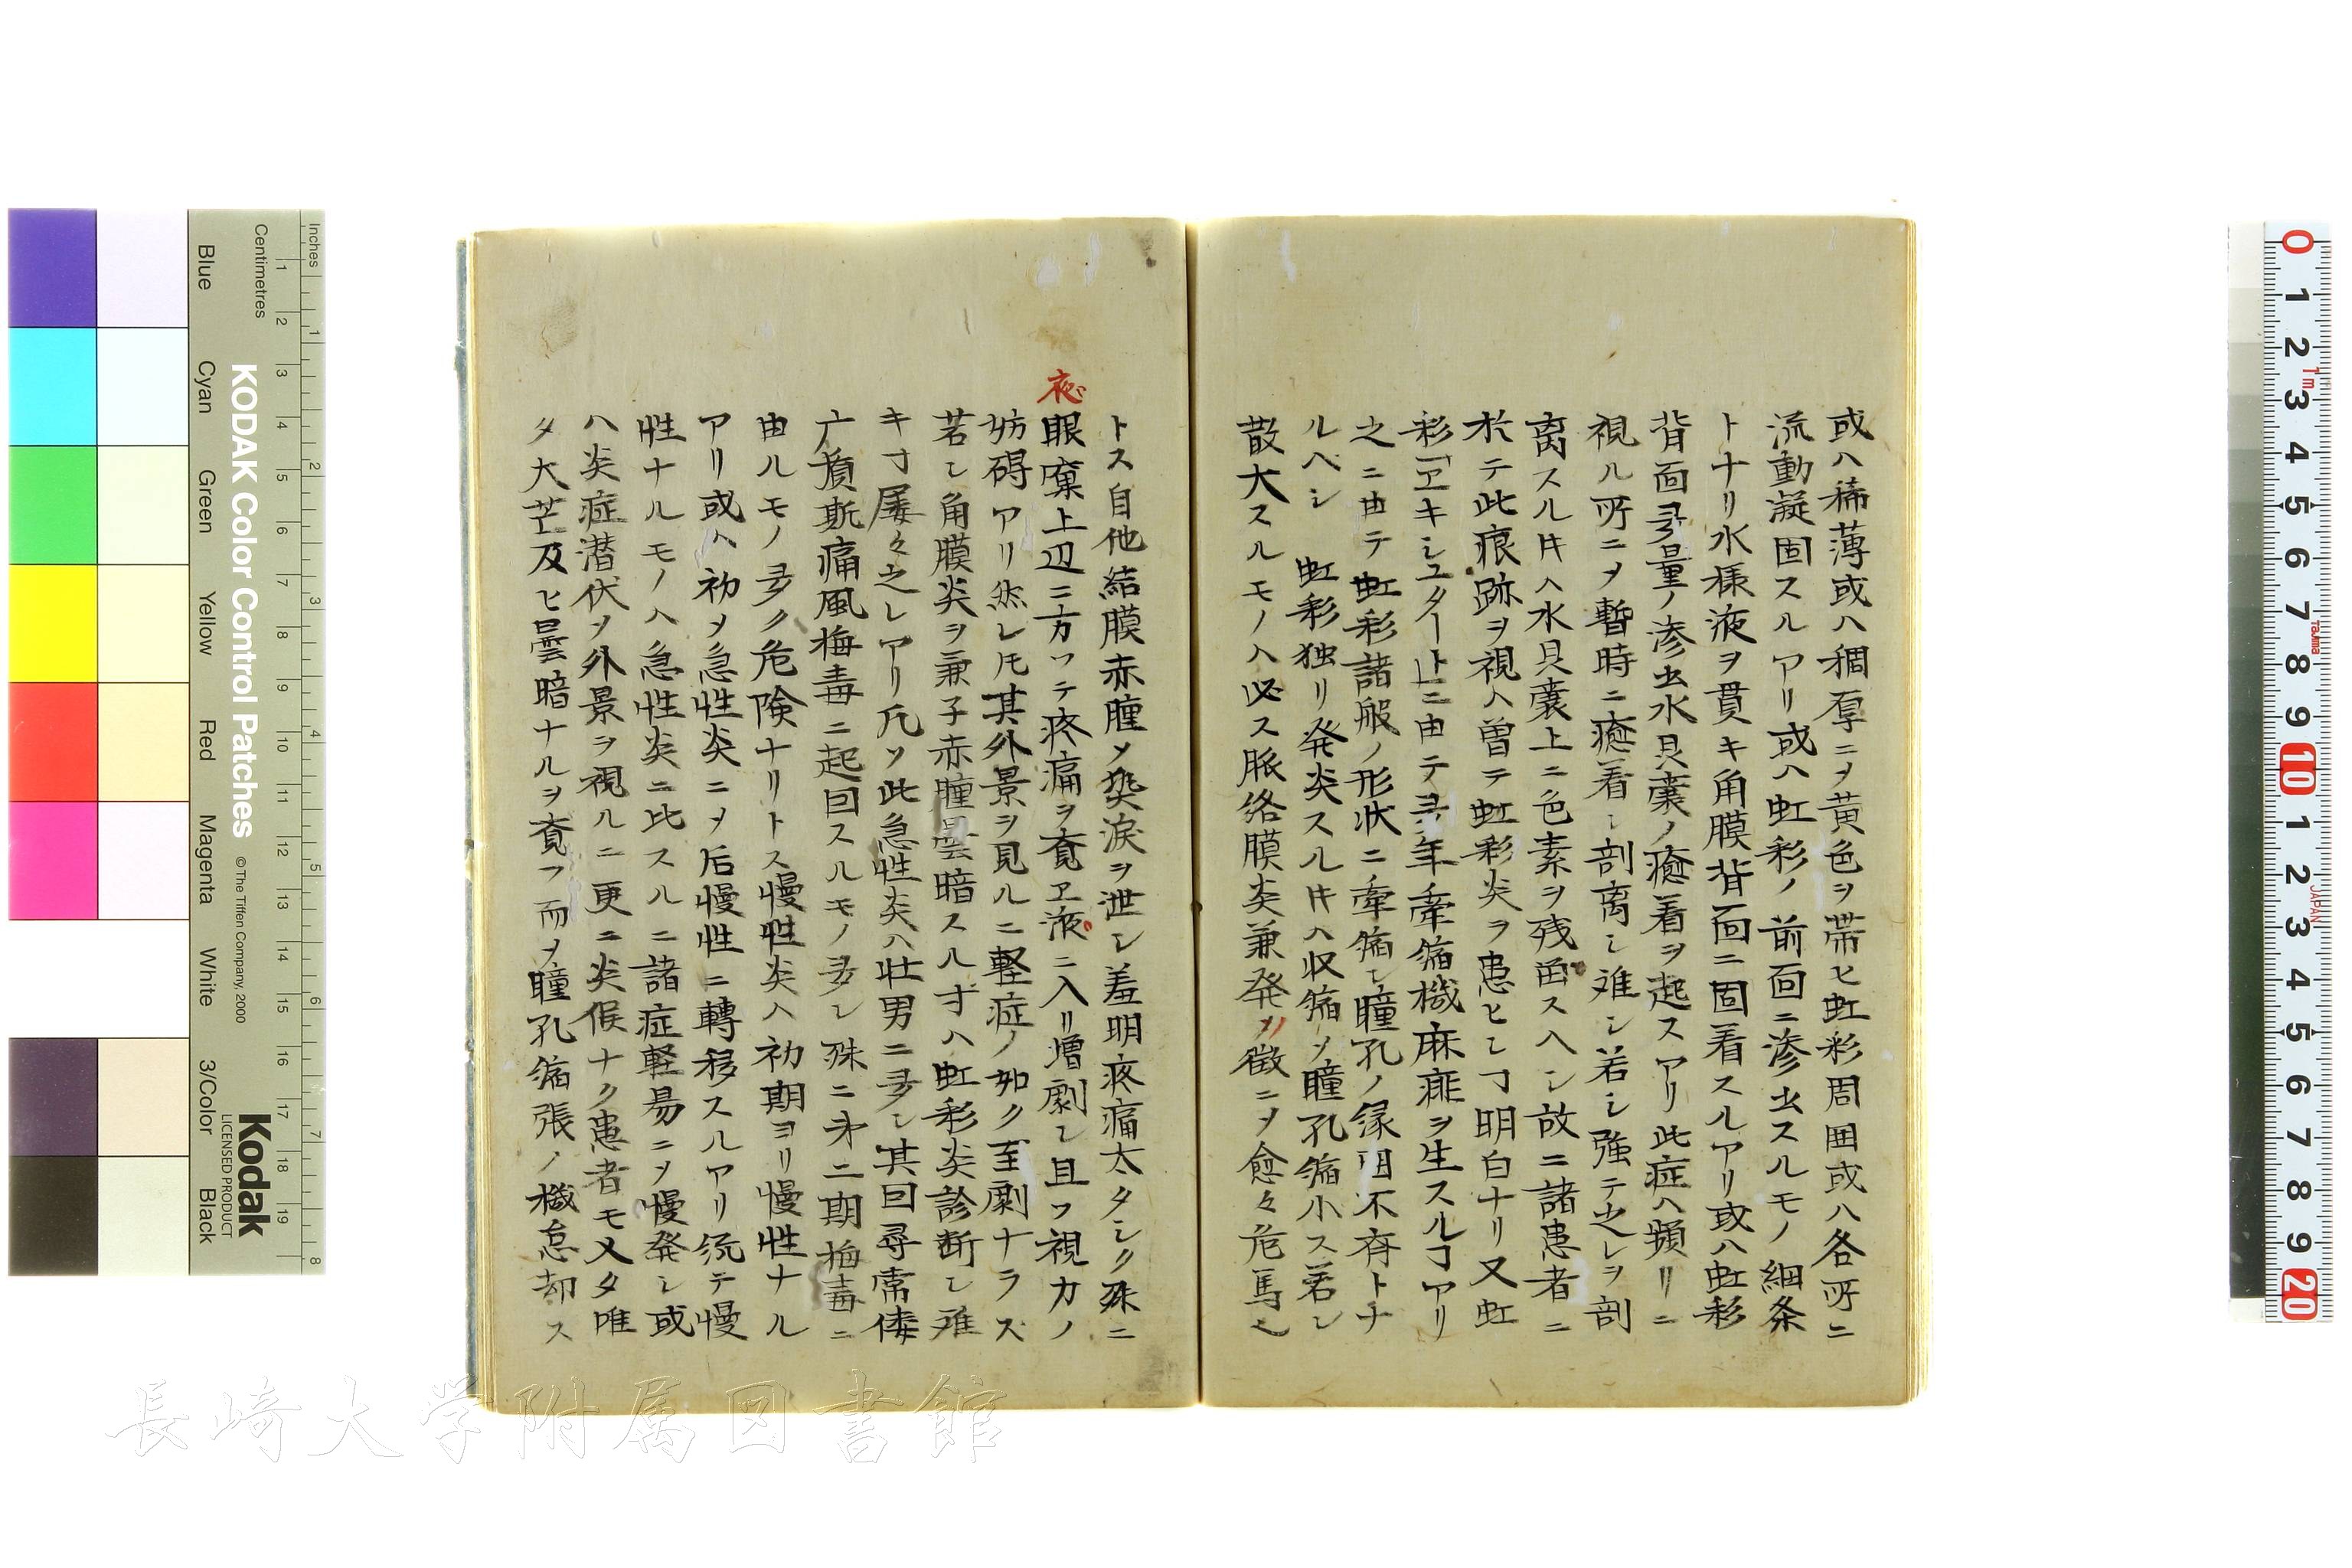 或ハ稀薄或ハ稠厚ニ〆黄色ヲ帯ヒ虹彩周囲或ハ各所ニ
流動凝固スルアリ或ハ虹彩ノ前面ニ滲出スルモノ細条
トナリ水様液ヲ貫キ角膜背面ニ固着スルアリ或ハ虹彩
背面多量ノ滲出水晶嚢ノ癒着ヲ起スアリ此症ハ頻リニ
視ル所ニ〆暫時ニ癒着シ剖离シ难シ若シ強テ之レヲ剖
离スル𪜈ハ水晶嚢上ニ色素ヲ残畄スヘシ故ニ諸患者ニ
於テ此痕跡ヲ視ハ曽テ虹彩炎ヲ患ヒシヿ明白ナリ又虹
彩「ヱキシュタート」ニ由テ多年牽縮機麻痱ヲ生スルヿアリ
之ニ由テ虹彩諸般ノ形状ニ牽縮シ瞳孔ノ縁囬不斉トナ
ルベシ 虹彩独リ発炎スル𪜈ハ収縮〆瞳孔縮小ス若シ
散大スルモノハ必ス脈絡膜炎兼発ノ徴ニ〆愈々危馬シ
トス自他結膜赤腫〆熱涙ヲ泄シ羞明疼痛太タシク殊ニ
眼窠上辺ニ方ツテ疼痛ヲ覚ヱ液ニ入リ増劇シ且ツ視力ノ
夜
妨碍アリ然レ𪜈其外景ヲ見ルニ軽症ノ如ク至劇ナラズ
若シ角膜炎ヲ兼子赤腫曇暗スル寸ハ虹彩炎診断シ难
キヿ屡々之レアリ凡ソ此急性炎ハ壮男ニ多シ其回尋常僂
广質斯痛風梅毒ニ起回スルモノ多シ殊ニ㐧二期梅毒ニ
由ルモノ多ク危険ナリトス慢性炎ハ初期ヨリ慢性ナル
アリ或ハ初メ急性炎ニ〆后慢性ニ轉移スルアリ統テ慢
性ナルモノハ急性炎ニ比スルニ諸症軽易ニ〆慢発シ或
ハ炎症潜伏〆外景ヲ視ルニ更ニ炎候ナク患者モ又タ唯
タ大芒及ヒ曇暗ナルヲ覚フ而〆瞳孔縮張ノ機怠却ス
Blue Cyan Green Yellow Red Magenta White 3/Color Black
KODAK Color Control Patches © The Tiffen Company, 2000
Kodak
LICENSED PRODUCT
Centimetres
Inches
長崎大学附属図書館